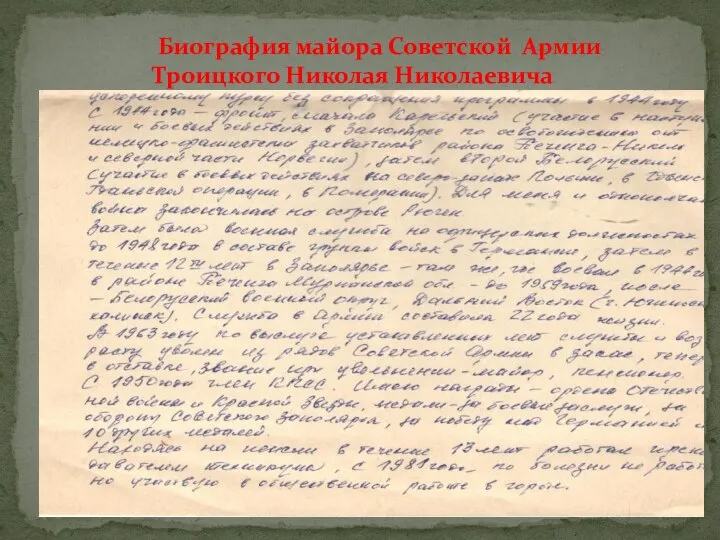 Биография майора Советской Армии
Троицкого Николая Николаевича
ускоренному курсу без сокращения программы в 1944 году
С 1944 года – фронт, сначала Карельский (участие в наступле
нии и боевых действиях в Заполярье по освобождению от
немецко-фашистских захватчиков района Печенга-Никель
и северной части Норвегии), затем второй Белорусский
(участие в боевых действиях на северо-западе Польши, в
Гданьской операции, в Померании). Для меня и однополчан
война закончилась на острове Рюген
Затем была военная служба на офицерских должностях
до 1948 года в составе группы войск в Германии, затем в
течение 12ти лет в Заполярье – там же, где воевал в 1944
в районе Печенга Мурманской обл. - до 1959 года, после
– Белорусский военный округ, Дальний Восток (г. Южно-Са
халинск). Служба в армии составила 22 года жизни.
В 1963 году по выслуге установленных лет службы и воз
расту уволен из рядов Советской Армии в запас, теперь
в отставке, звание при увольнении – майор, пенсионер.
С 1950 года член КПСС. Имею награды – ордена Отечествен
ной войны и Красной Звезды, медали – За боевые заслуги, за
оборону Советского Заполярья, за победу над Германией и
10 других медалей.
Находясь на пенсии в течение 13 лет работал
давателем техникума, с 1981 года, по болезни не работаю
но участвую в общественной работе в городе.